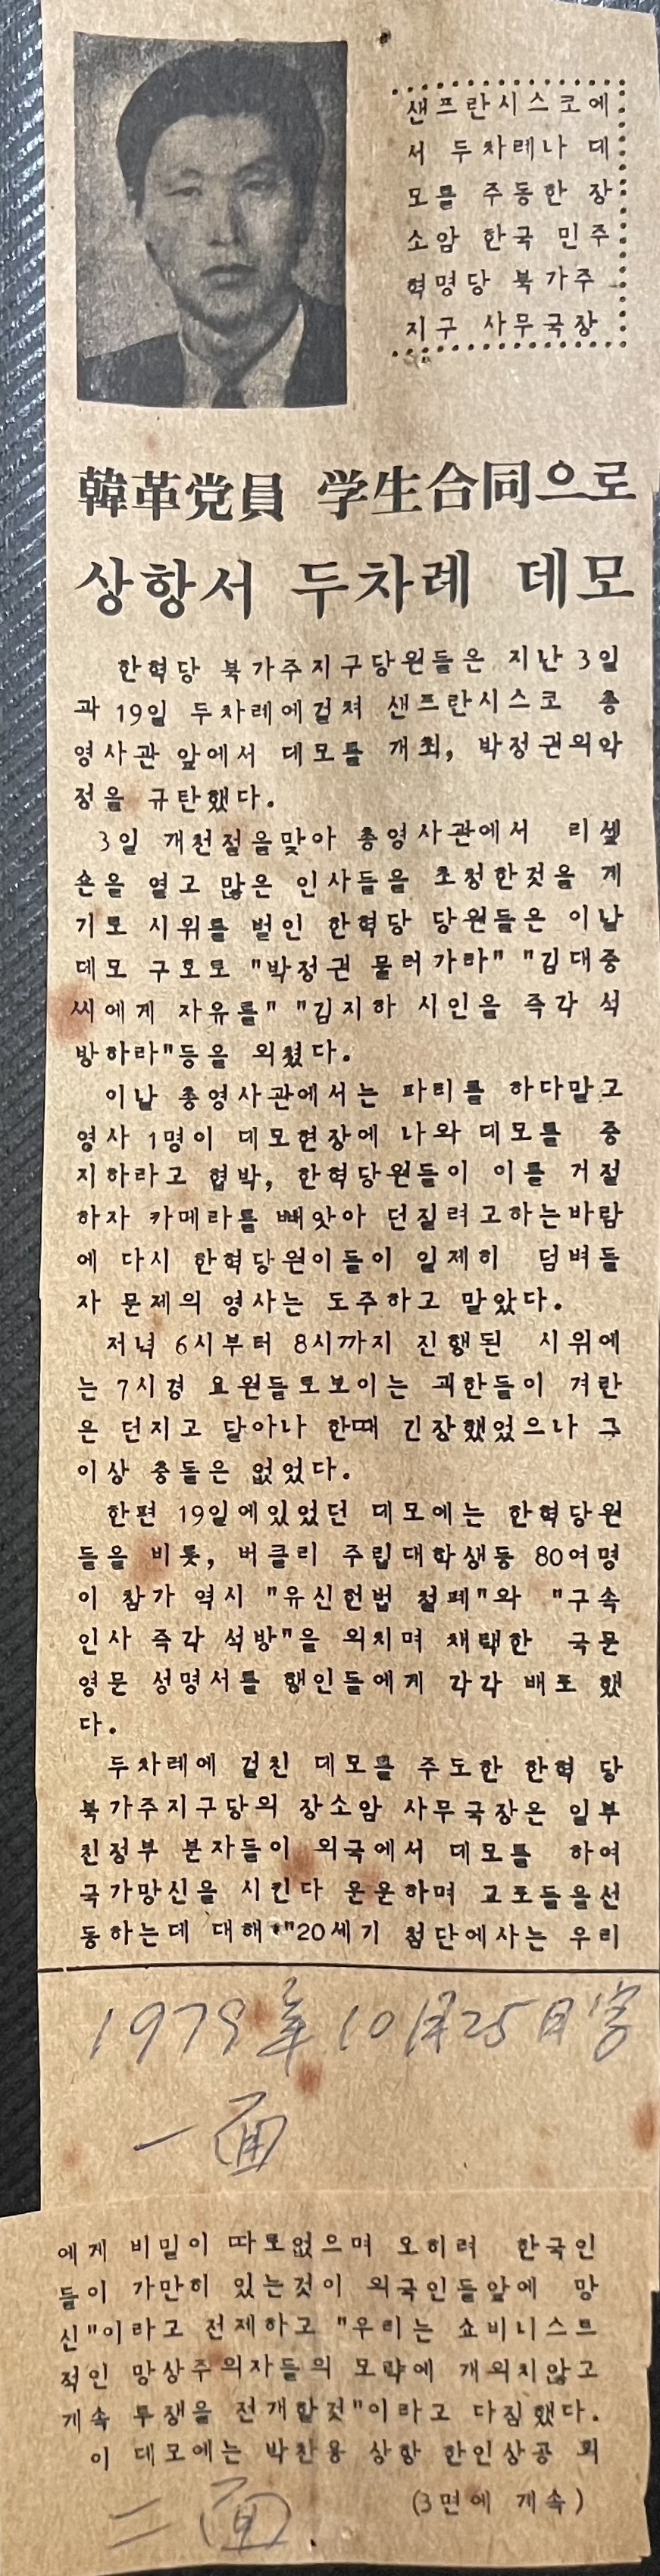 샌프란시스코에
서 두차례나 데
모를 주동한 장
소암 한국 민주
혁명당 북가주
지구 사무국장
韓革党員 学生合同으로
상항서 두차례 데모
한혁당 북가주지구당원들은 지난 3일
과 19일 두차례에걸쳐 샌프란시스코 총
영사관 앞에서 데모를 개최, 박정권의악
정을 규탄했다.
3일 개천절을맞아 총영사관에서 리셒
숀을 열고 많은 인사들을 초청한것을 계
기로 시위를 벌인 한혁당 당원들은 이날
데모 구호로 "박정권 물러가라" "김대중
씨에게 자유를" "김지하 시인을 즉각 석
방하라"등을 외쳤다.
이날 총영사관에서는 파티를 하다말고
영사 1명이 데모현장에 나와 데모를 중
지하라고 협박, 한혁당원들이 이를 거절
하자 카메라를 빼앗아 던질려고하는바람
에 다시 한혁당원이들이 일제히 덤벼들
자 문제의 영사는 도주하고 말았다.
저녁 6시부터 8시까지 진행된 시위에
는 7시경 요원들로보이는 괴한들이 겨란
은 던지고 달아나 한때 긴장했었으나 그
이상 충돌은 없었다.
한편 19일에있었던 데모에는 한혁당원
들을 비롯, 버클리 주립대학생등 80여명
이 참가 역시 "유신헌법 철폐"와 "구속
인사 즉각 석방"을 외치며 채택한 국문
영문 성명서를 행인들에게 각각 배포 했
다.
두차례에 걸친 데모를 주도한 한혁 당
북가주지구당의 장소암 사무국장은 일부
친정부 분자들이 외국에서 데모를 하여
국가망신을 시킨다 운운하며 교포들을선
동하는데 대해 "20세기 첨단에사는 우리
1979年 10月25日字
一面
에게 비밀이 따로없으며 오히려 한국인
들이 가만히 있는것이 외국인들앞에 망
신"이라고 전제하고 "우리는 쇼비니스트
적인 망상주의자들의 모략에 개의치않고
계속 투쟁을 전개할것"이라고 다짐했다.
이 데모에는 박찬웅 상항 한인상공 회
(3면에 계속)
二面